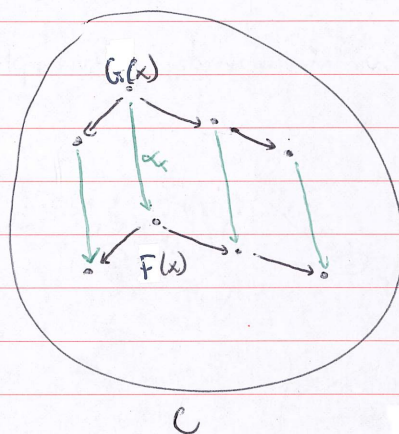 G(x)
αx
F(x)
C